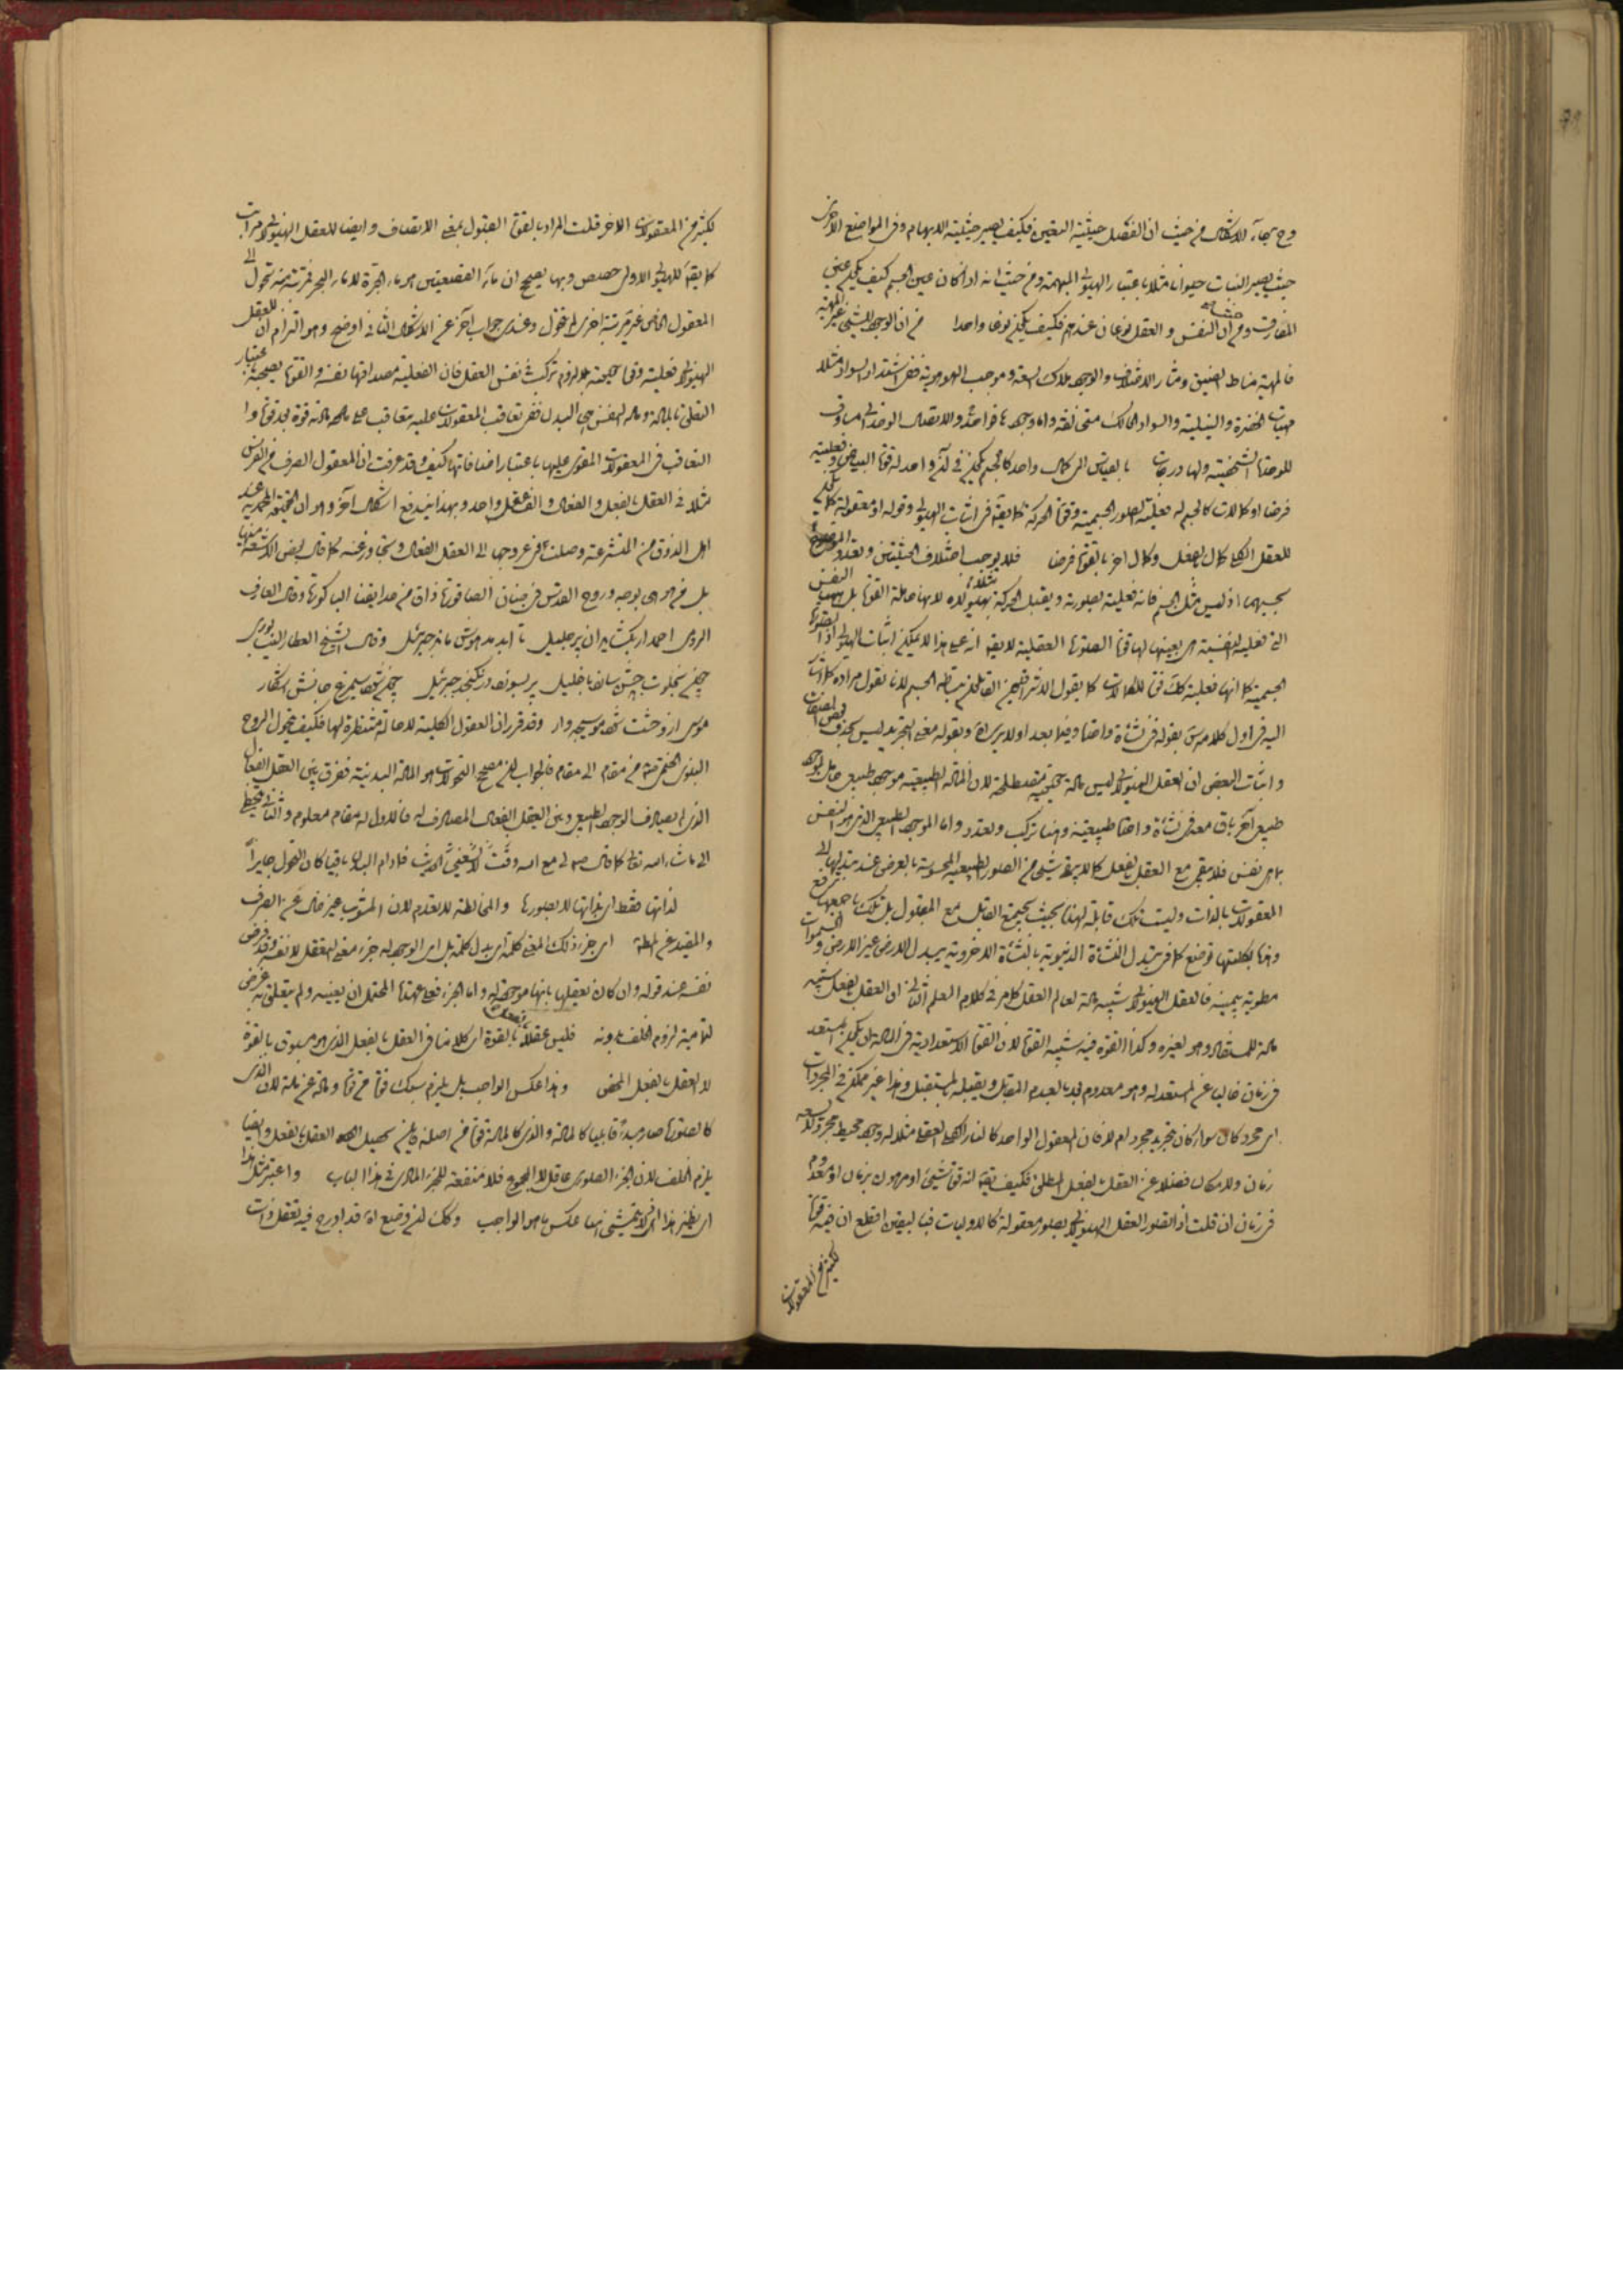 وح جاء الاشكال من حيث ان الفصل حيثية التعين فكيف يصير حيثية الابهام وفى المواضع الاخرى
حيث يصير النبات حيوانا مثلا باعتبار الهيولى المبهمة ومن حيث انه اذا كان عين الجسم كيف يكون عين
المفارق ومن حيث ان النفس والعقل نوعان عندهم فكيف يكون نوعا واحدا من ان الوجود للشئ غير المهية
فالمهية مناط الضيق ومثار الاختلاف والوجود ملاك السعة وموجب الهوهوية ففى اشتداد السواد مثلا
مهيات الخضرة والنيلية والسواد الحالك متخالفة واما وجودها فواحد والاتصال الوحدانى مساوق
للوحدة الشخصية ولها درجات بالقياس الى كمال واحد كالجسم يكون فى آن واحد له قوة البياض وفعليته
فرضا او كمالات كالجسم له فعلية الصور الجسمية وقوة الحركة كما يقال فى اثبات الهيولى وقوله او معقولية
للعقل الهيولى كمال بالفعل وكمال اخر بالقوة فرضا فلا يوجب اختلاف الحيثيتين وتعدد الموضوع
بحسبهما اذ ليس مثل الجسم فانه فعلية بصورته ويقبل الحركة مثلا بهيولاه لانها حاملة القوة بل
التى فعلية النفسية هى بعينها لها قوة الصورة العقلية لا يقال فعلى هذا لا يمكن اثبات الهيولى اذ الصورة
الجسمية كما انها فعلية كذلك قوة للكمالات كما يقول الاشراقيون القائلون ببساطة الجسم لانا نقول مراده كما اشار
اليه فى اول كلامه س بقوله فى نشأة واحدة وفيما بعد اولا بريبة وبقوله معنى التجريد ليس بحذف بعض الصفات
واثبات البعض ان العقل الهيولانى ليس مادة حقيقية مصطلحة لان المادة الطبيعية موجود طبيعى حامل لموجود
طبيعى آخر باق معه فى نشأة واحدة طبيعية وهنا تركب وتعدد واما الموجود الطبيعى الذى هو النفس
بما هى نفس فلا يبقى مع العقل بالفعل كما لا يبقى شئ من الصور الطبيعية المحسوسة بالعرض عند تبدلها الى
المعقولات بالذات وليست تلك قابلة لهذه بحيث يجتمع القابل مع المقبول بل تلك باجمعها ترفع
وهذه بكليتها توضع كما فى تبدل النشأة الدنيوية بالنشأة الاخروية يوم تبدل الارض غير الارض والسموات
مطويات بيمينه فالعقل الهيولانى شبيه مادة لعالم العقل كما مر فى كلام المعلم الثانى ان العقل بالفعل شبيه
مادة للمستفاد وهو لغيره وكذا القوة فيه شبيه القوة لان القوة الاستعدادية فى المادة ان يكون المستعد
فى زمان خاليا عن المستعد له وهو معدوم فيه بالعدم المقابل ويقبله فى المستقبل وهذا غير ممكن فى المجردات
اى مجرد كان سواء كان بتجريد مجرد ام لا فان المعقول الواحد كالنار الكلى العقلى مثلا له وجود محيط مجرد لا يسعه
زمان ولا مكان فضلا عن العقل بالفعل المطلق فكيف يقال له قوة شئ او مرهون بزمان او معدوم
فى زمان ان قلت اذا تصور العقل الهيولانى بصور معقولة كالاوليات فباليقين اقطع ان فيه قوة
لكثير من المعقولات
لكثير من المعقولات الاخر قلت المراد بالقوة القبول بمعنى الاتصاف وايضا للعقل الهيولانى مراتب
كما يقال للهيولى الاولى حصص وبها يصحح ان ماء القصعتين هو ماء الجرة لا ماء البحر فمرتبة منه تحول الى
المعقول الخاص غير مرتبة اخرى لم تحول وعندى جواب آخر عن الاشكال الثانى اوضح وهو التزام ان للعقل
الهيولانى فعلية وقوة حقيقة بلا لزوم تركب فى نفس العقل فان الفعلية مصداقها نفسه والقوة يصححه اعتبار
التعلق بالمادة وما للنفس هى البدن ففى تعاقب المعقولات عليه يتعاقب على مادته قوة بعد قوة او
التعاقب فى المعقولات المقوى عليها باعتبار اضافاتها كيف وقد عرفت ان المعقول الصرف من الفرس
مثلا فى العقل بالفعل والفعال والف عقل واحد وبهذا يندفع اشكال آخر وهو ان الحقيقة المحمدية عند
اهل الذوق من المتشرعة وصلت فى عروجها الى العقل الفعال وتجاوز عنه كما قال بعض الاشعة منها
بل من هو هى بوجه وروح القدس فى جنان الصاقورة ذاق من حدائقنا الباكورة وقال العارف
الرومى احمد ار بگشايد آن پر جليل تا ابد مدهوش ماند جبرئيل وقال الشيخ العطار النيشابورى
چون بخلوت جشن سازد با خليل پر بسوزد در نگنجد جبرئيل چون شود سيمرغ جانش آشكار
موسى از وحشت شود موسيچه وار وقد قرر ان العقول الكلية لا حالة منتظرة لها فكيف يتحول الروح
النبوى الختمى ص من مقام الى مقام فالجواب ان مصحح التحولات هو المادة البدنية ففرق بين العقل الفعال
الذى لم يصادف الوجود الطبيعى وبين العقل الفعال المصادف له فالاول له مقام معلوم والثانى يتخطى
الى ما شاء الله تعالى كما قال ص لى مع الله وقت لا يسعنى الحديث فمادام البدن باقيا كان التحول جايزا
لذاتها فقط اى بذاتها لا بصورتها والمخالطة للاعدام لان المشوب غير خال عن الصرف
والمقيد عن المطلق اى جزء ذلك المعنى كلمة اى بدل كلمة بل اى الوجود له جزء معنى المعقل لا نفسه وقد فرض
نفسه عند قوله وان كان تعقلها بانها موجودة له واما الجزء فعلى عهدة المحتمل ان يعينه ولم يتعلق به غرض
لتمامية لزوم الخلف بدونه فليس عقلا بالفعل بالقوة اى كلامنا فى العقل بالفعل الذى هو مسبوق بالقوة
لا العقل بالفعل المحض وهذا عكس الواجب بل يلزم سبك قوة من قوة ومادة عن مادة لان الذى
كالصورة صار مبدأ قابليا كالمادة والذى كالمادة قوة من اصله فاين يحصل العقل بالفعل وايضا
يلزم الخلف لان الجزء الصورى عاقل لا المجموع فلا منفعة للجزء المادى فى هذا الباب واعتبر مثل هذا
اى نظير هذا اذ لا يتمشى فيها عكس ما هو الواجب وكذلك لو وضع انه قد ادرج فيه تعقل ذات